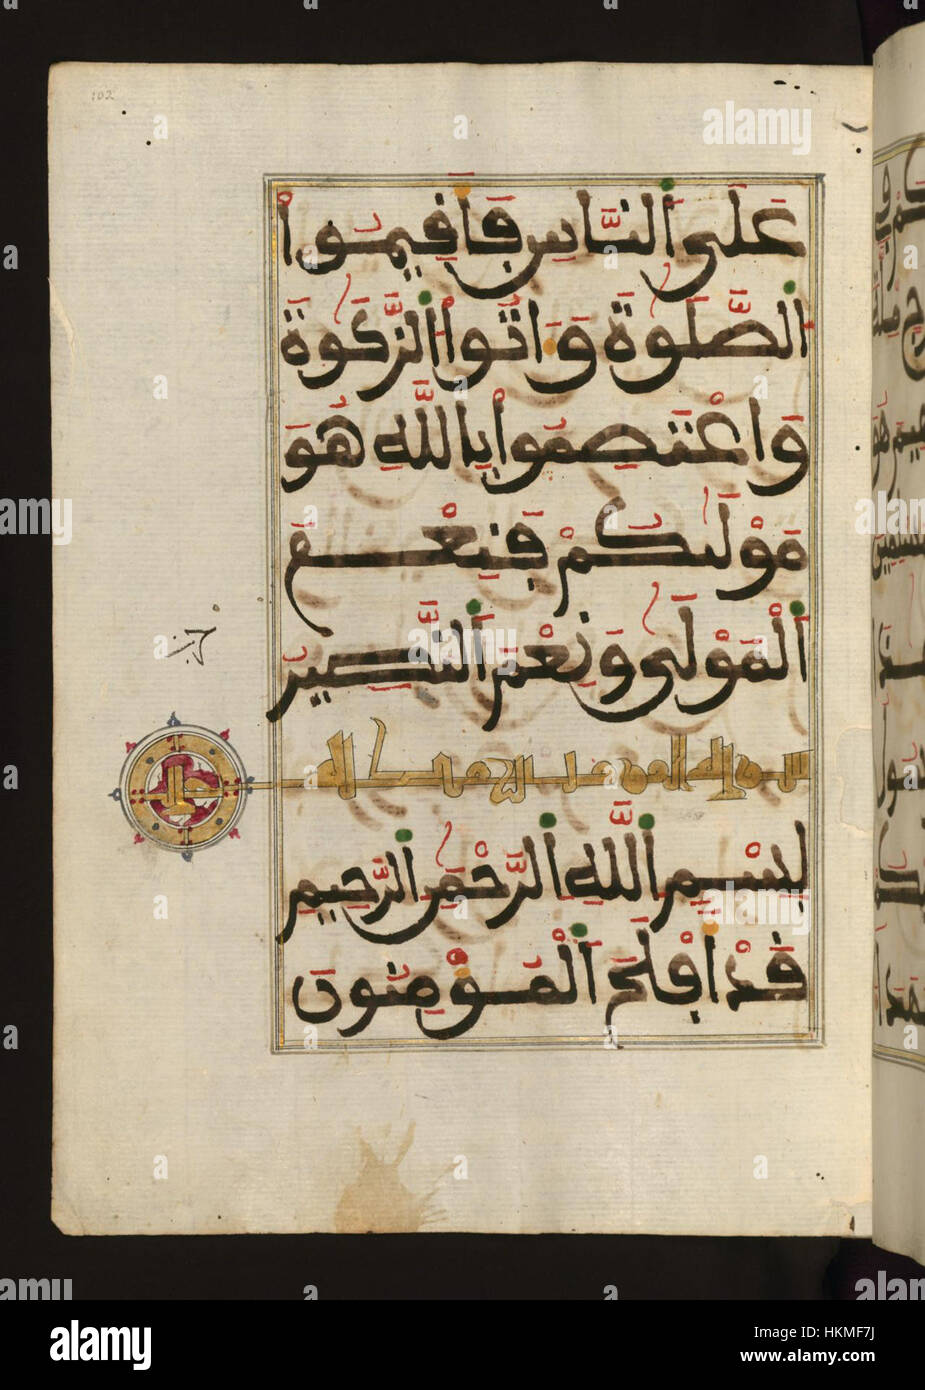 102
عَلَى النَّاسِ فَأَقِيمُوا
الصَّلَوٰةَ وَءَاتُوا الزَّكَوٰةَ
وَاعْتَصِمُوا بِاللَّهِ هُوَ
مَوْلَىٰكُمْ فَنِعْمَ
الْمَوْلَىٰ وَنِعْمَ النَّصِيرُ
حزب
سورة
بِسْمِ اللَّهِ الرَّحْمَٰنِ الرَّحِيمِ
قَدْ أَفْلَحَ الْمُؤْمِنُونَ
alamy
alamy
Image ID: HKMF7J
www.alamy.com